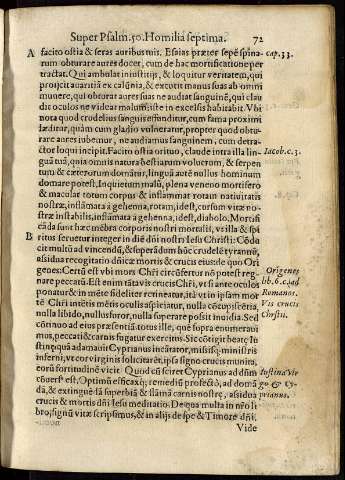 Super Psalm. 50. Homilia septima. 72
A facito ostia & seras auribus tuis. Esaias præter sepē spina- cap. 33.
rum obturare aures docet, cum de hac mortificatione per
tractat. Qui ambulat in iustitijs, & loquitur veritatem, qui
proijcit auaritiā ex calūnia, & excutit manus suas ab omni
munere, qui obturat aures suas ne audiat sanguinē, qui clau
dit oculos ne videat malum: iste in excelsis habitabit. Vbi
nota quod crudelius sanguis effunditur, cum fama proximi
læditur, quàm cum gladio vulneratur, propter quod obtu-
rare aures iubemur, ne audiamus sanguinem, cum detra-
ctor loqui incipit. Facito ostia ori tuo, claude intra illa lin- Iacob. c. 3.
guā tuā, quia omnis natura bestiarum volucrum, & serpen
tum & cæterorum domātur, linguā autē nullus hominum
domare potest. Inquietum malū, plena veneno mortifero
& macular totum corpus & inflammat rotam natiuitatis
nostræ, inflāmata à gehenna, rotam, idest, corsum vitæ no-
stræ instabilis, inflāmata à gehenna, idest, diabolo. Mortifi
cāda sunt hæc mēbra corporis nostri mortalis, vt illa & spi
B ritus seruetur integer in die dñi nostri Iesu Christi: Cōdu
cit multū ad vincendū, & superādum hūc crudelē tyrannū,
assidua recogitatio dñicæ mortis & crucis eius de quo Ori-
genes: Certū est vbi mors Chři circūfertur nō potest reg- Origenes
nare peccatū. Est enim tāta vis crucis Chři, vt si ante oculos lib. 6. c. ad
ponatur & in mēte fideliter retineatur, ita vt in ipsam mor Romanos.
tē Chři intētis mētis oculis aspiciatur, nulla cōcupiscētia Vis crucis
nulla libido, nullus furor, nulla superare possit inuidia. Sed Christi.
cōtinuo ad eius præsentiā totus ille, quē supra enumeraui
mus, peccati & carnis fugatur exercitus. Sic cōtigit beatę Iu
stinę quā adamauit Cyprianus incātator, missisq́; ministris
inferni, vt cor virginis solicitarēt, ipsa signo crucis munita,
eorū fortitudinē vicit. Quod cū sciret Cyprianus ad dūm Iustina Vir
cōuersꝰ est, Optimū efficaxq́; remediū profectò, ad domā go & Cy-
dā, & extinguēdā superbiā & flāmā carnis nostræ, assidua prianus.
crucis & mortis dñi Iesu meditatio. De qua multa in nřo li
bro, signū vitæ scripsimus, & in alijs de spe & Timore dñi.
Vide